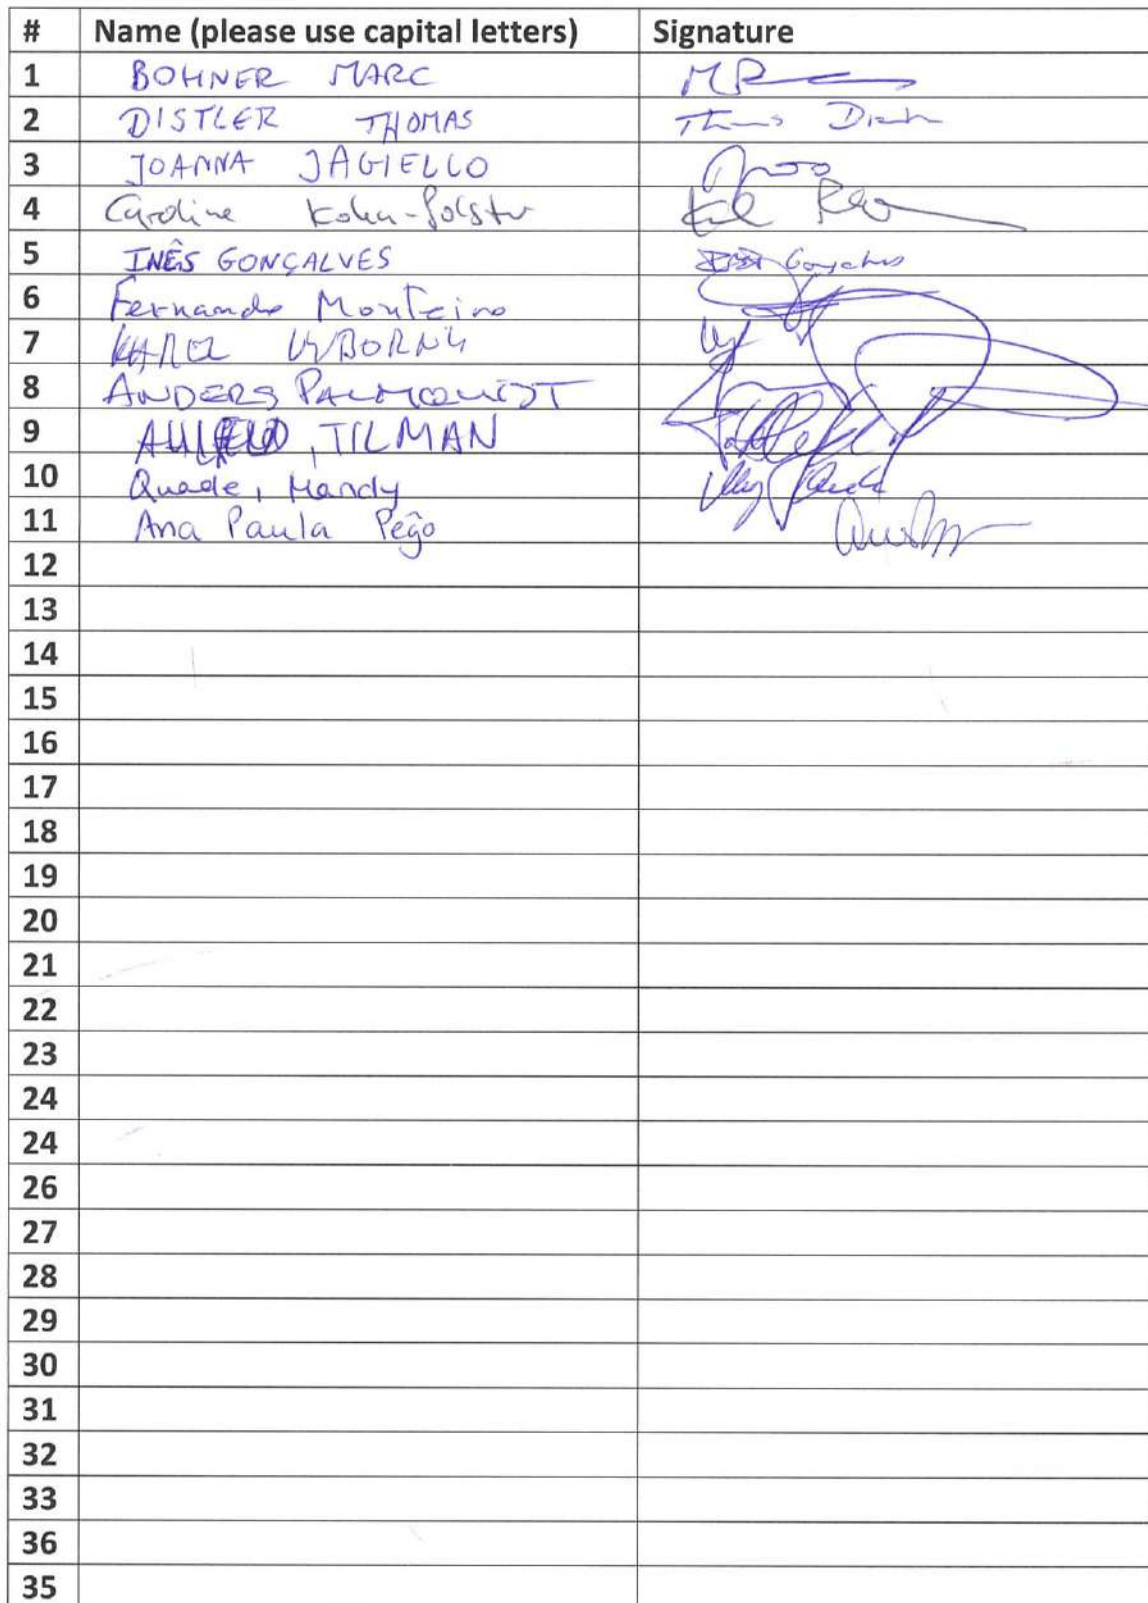 # Name (please use capital letters) Signature
1 BOHNER MARC
2 DISTLER THOMAS
3 JOANNA JAGIELLO
4 Caroline
5 INÊS GONÇALVES Gonçalves
6 Fernando Monteiro
7 KAREL VYBORNÝ
8 ANDERS PALMQUIST
9 AHLFELD, TILMAN
10 Quade, Mandy
11 Ana Paula Pêgo
12
13
14
15
16
17
18
19
20
21
22
23
24
24
26
27
28
29
30
31
32
33
36
35